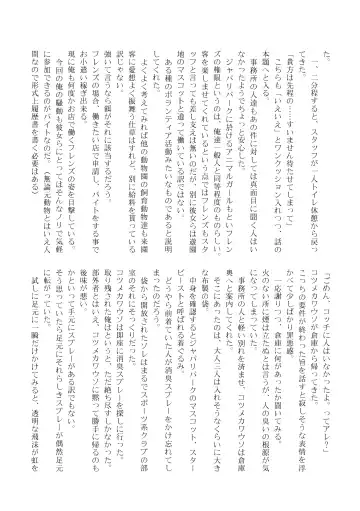 た。
　一、二分程すると、スタッフが一人トイレ休憩から戻っ
てきた。
「貴方は先程の…すいませんお待たせでしまって」
　こちらも「いえいえ」とワンクッション入れつつ、話の
本題へと入る。
　事務所の人達もあの件に対しては真面目に聞く人はい
なかったようでちょっと安心した。
　ジャパリパークに於けるアニマルガールもといフレン
ズの権限というのは、俺達一般人と同等程度のものらしい。
　客を楽しませてくれているという点ではフレンズもスタ
ッフと言っても差し支えは無いのだが、別に彼女らは遊園
地のマスコットと違って働いている訳ではない。
　ある種のボランティア活動みたいなものであると説明
してくれた。
　よくよく考えてみれば他の動物園の飼育動物達も来園
客に愛想よく振舞う仕草はすれど、別に給料を貰っている
訳じゃない。
　強いて言うなら餌がそれに該当するだろう。
　フレンズの場合、働きたい店で申請し、バイトをする事で
お小遣い稼ぎ出来る。
　現に俺も何度かお店で働くフレンズの姿を目撃している。
　今回の俺の騒動も彼女らにとってはそんなノリで気軽
に参加できるのがバイトなのだ。（無論元動物とはいえ人
間なので形式上履歴書を書く必要はある）
「ごめん、コッチに人はいなかったよ。ってアレ？」
　コツメカワウソが倉庫から帰ってきた。
　こっちの要件が終わった旨を話すと寂しそうな表情を浮
かべて少しばかり罪悪感。
　一応謝りつつ、何があったか聞いてみる。
　火のない所に煙はたたぬとは言うが、人の臭いの根源が気
になってしまっていた。
　事務所の人と軽い別れを済ませ、コツメカワウソは倉庫
奥へと案内してくれた。
　そこにあったのは、大人二人は入れそうなくらいに大き
な布製の袋。
　中身を確認するとジャパリパークのマスコット、スター
ビーストと呼ばれる着ぐるみ。
　どうやら前着ていた人が消臭スプレーをかけ忘れてし
まったのだろう。
　袋から開放されたソレはまるでスポーツ系クラブの部
室のそれにそっくりだった。
　コツメカワウソは即座に消臭スプレーを探しに行った。
　取り残された俺はというと、ただ絶ち尽すしかなかった。
　部外者とはいえ、コツメカワウソに黙って勝手に帰るのも
後味が悪い。
　かといって手元にスプレーがある訳でもない。
　そう思っていたら足元にそれらしきスプレーが偶然足元
に転がっていた。
　試しに足元に一瞬だけかけてみると、透明な飛沫が虹を